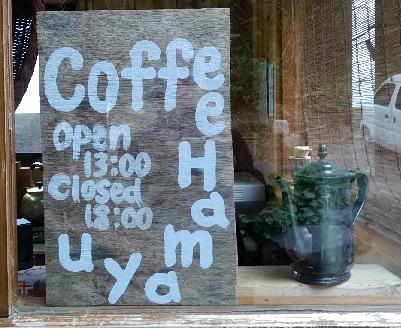 Coffee Hamayu
open
13:00
closed
18:00